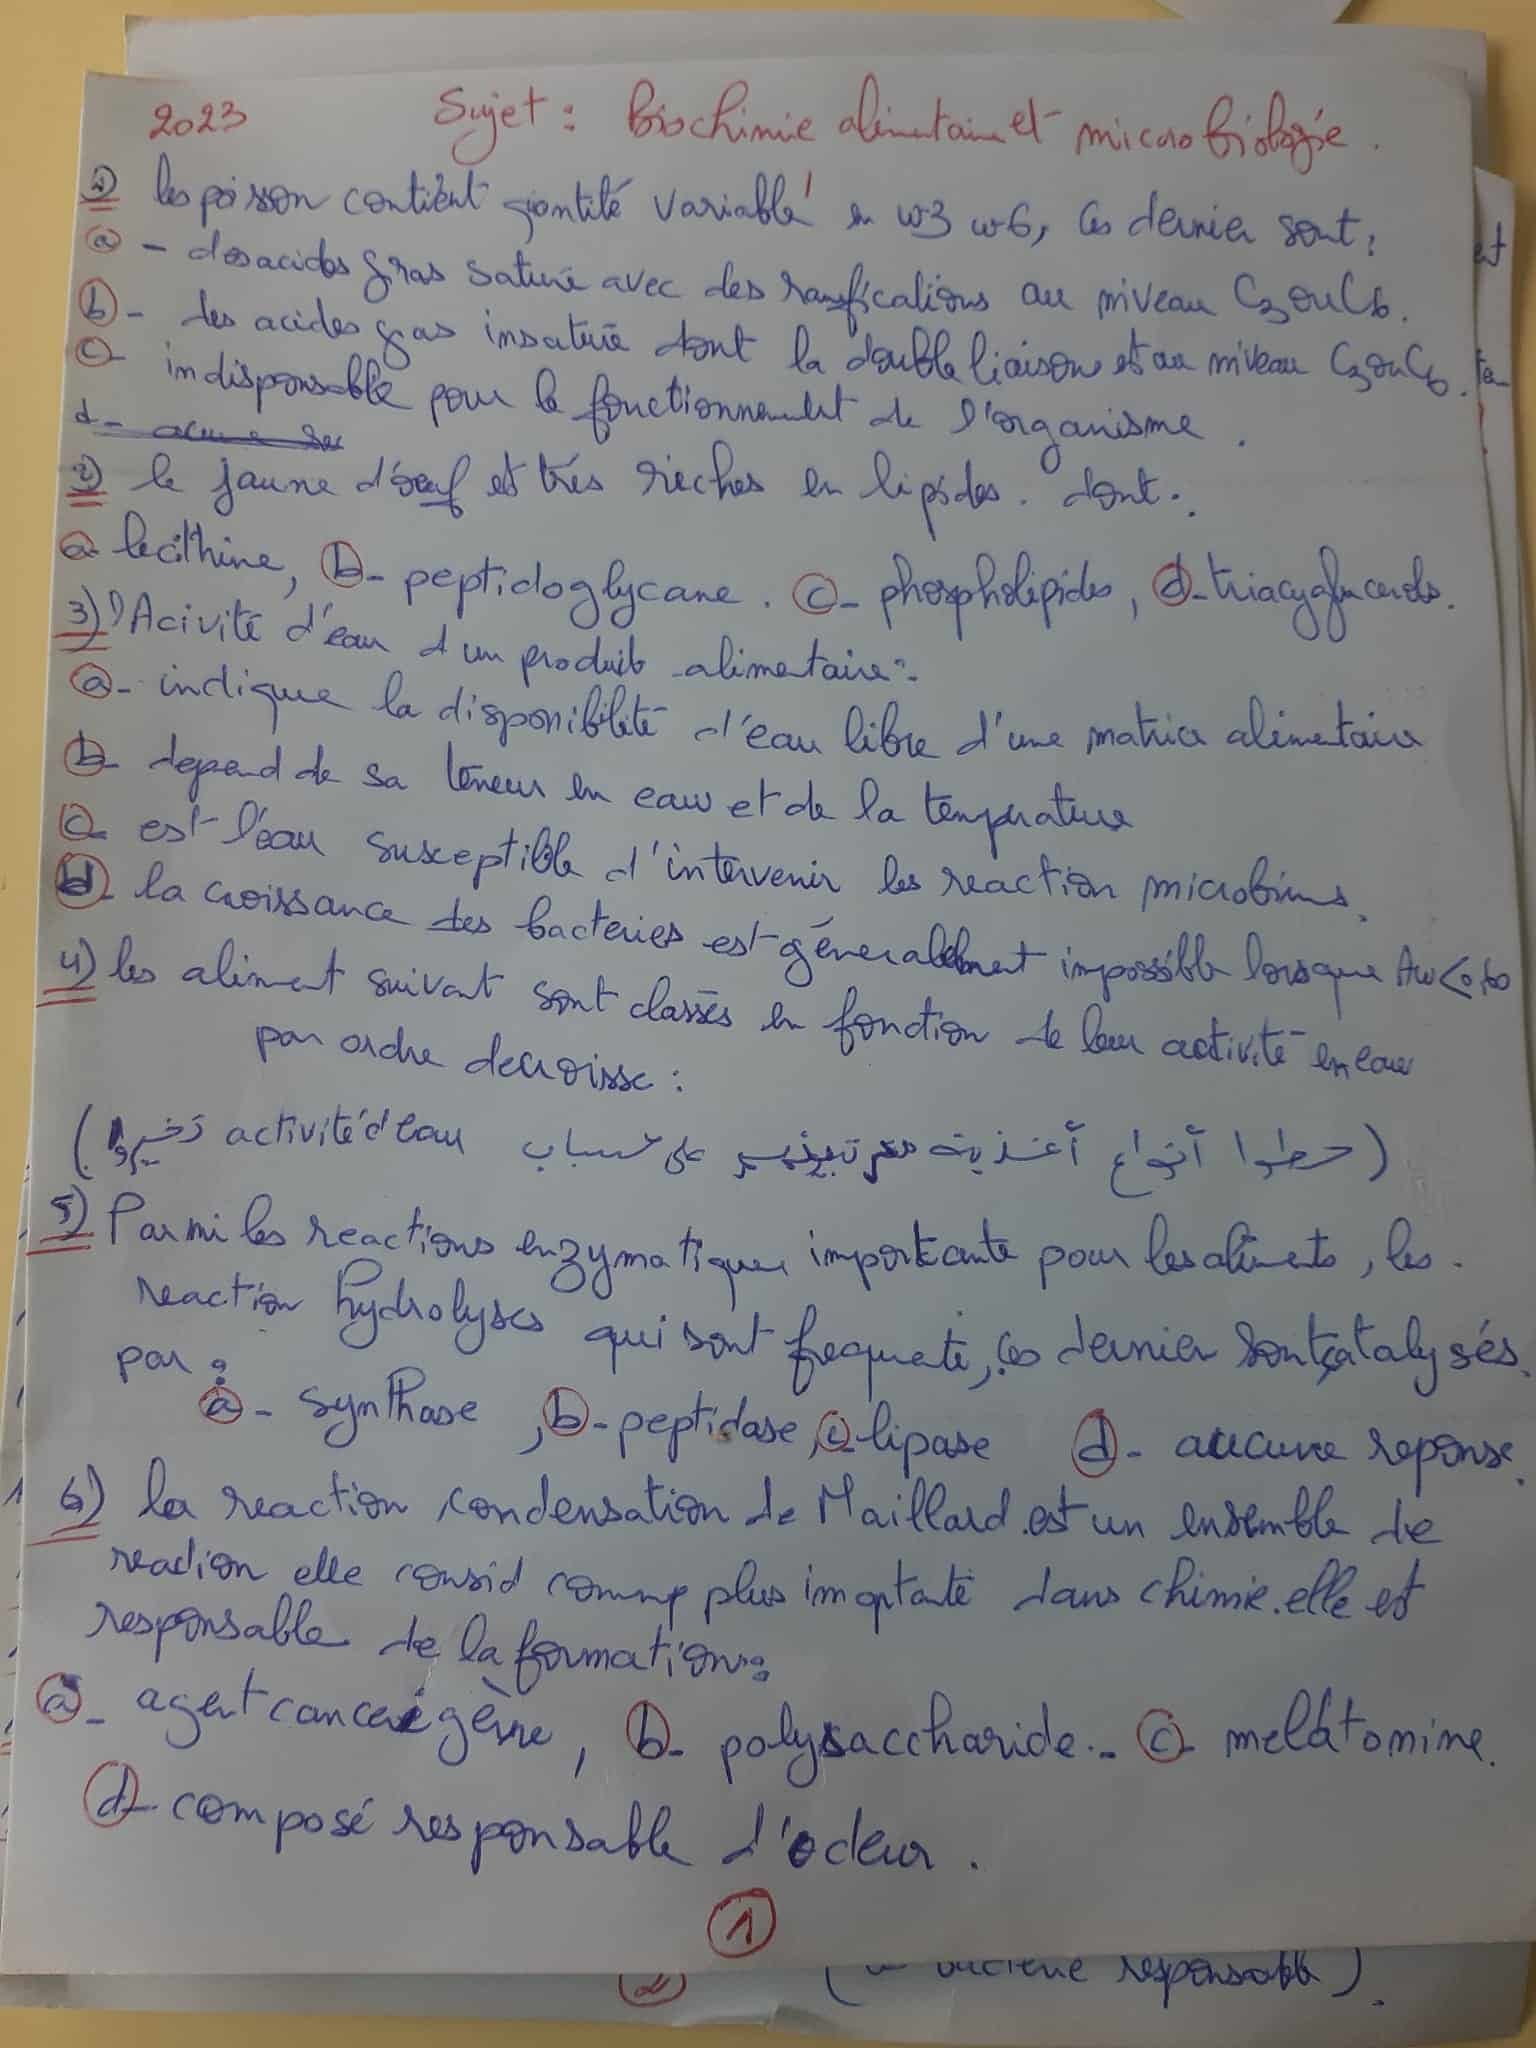 2023 Sujet : Biochimie alimentaire et microbiologie .
1) les poisson contient qiontité variable en w3 w6, ces dernier sont :
a - des acides gras saturé avec des ramifications au niveau C3 ou C6 .
b - des acides gras insaturé dont la double liaison et au niveau C3 ou C6 .
c - indisponsable pour le fonctionnement de l'organisme .
2) le jaune d'œuf et trés riches en lipides . dont :
a - lecithine , b - peptidoglycane . c - phospholipides , d - triacyglycerols .
3) l'Acivité d'eau d'un produit alimentaire :
a - indique la disponibilité d'eau libre d'une matrice alimentaire
b - depend de sa teneur en eau et de la temperature
c - est l'eau susceptible d'intervenir les reaction microbiens .
d - la croissance des bacteries est génerallement impossible lorsque Aw < 0,60
4) les aliment suivant sont classés en fonction de leur activité en eau
par ordre decroisse :
(حطوا أنواع أغذية على حساب activité d'eau)
5) Parmi les reactions enzymatiques importante pour les aliments , les
reaction hydrolyses qui sont frequente , ces dernier sont catalysés
par :
a - synthase , b - peptidase , c - lipase d - aucune reponse .
6) la reaction condensation de Maillard est un ensemble de
reaction elle consid comme plus imoptante dans chimie . elle et
responsable de la formation :
a - agent cancerigène , b - polysaccharide . - c - melatonine .
d - composé responsable d'odeur .
1
2 ( bacterie responsable ) .